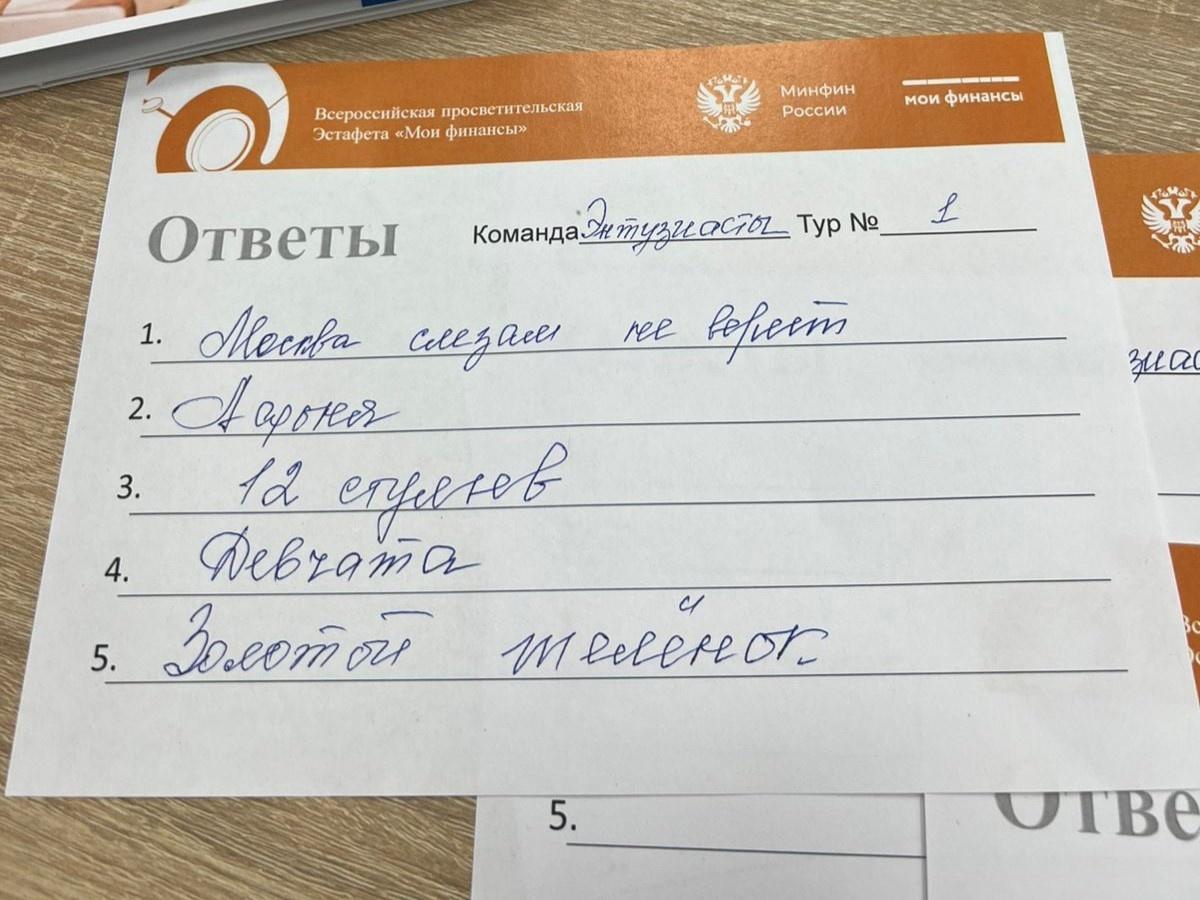 Всероссийская просветительская
Эстафета «Мои финансы»
Минфин
России
мои финансы
Ответы
Команда Энтузиасты Тур № 1
1. Москва слезам не верит
2. Афоня
3. 12 стульев
4. Девчата
5. Золотой телёнок
5.
Отве